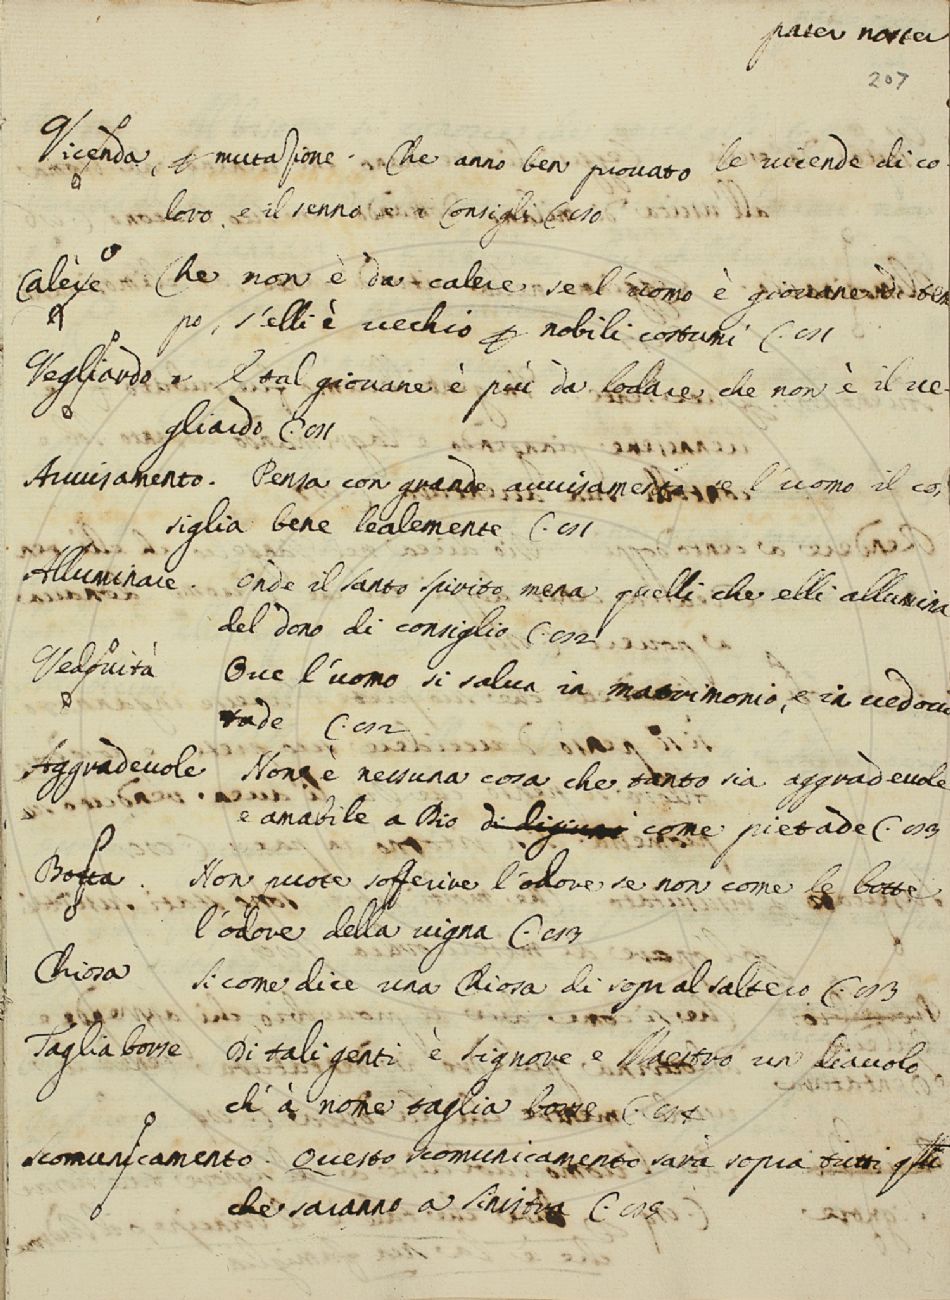 pater noster
207
Vicenda, p mutazione. Che anno ben prouato le uicende di co-
loro, e il senno e i Consigli C. 190
Calére Che non è da calere se l'uomo è giouane di tem
po, s'elli è uecchio p nobili costumi C. 191
Vegliardo E tal giouane è più da lodare che non è il ue-
gliardo C. 191
Auuisamento. Pensa con grande auuisamento se l'uomo il con
siglia bene lealemente C. 191
Alluminare. Onde il Santo Spirito mena quelli che elli allumina
del dono di consiglio C. 192
Vedouità Oue l'uomo si salua in matrimonio, e in uedoui
tade C. 192
Aggradeuole Non è nessuna cosa che tanto sia aggradeuole
e amabile a Dio di digiuni come pietade C. 193
Botta. Non puote sofferire l'odore se non come le botte
l'odore della uigna C. 193
Chiosa Si come dice una Chiosa di sopra al saltero C. 193
Taglia borse Di tali genti è Signore e Maestro un diauolo
ch'à nome taglia borse C. 194
Scomunicamento. Questo scomunicamento sarà sopra tutti qlli
che saranno a sinistra C. 195